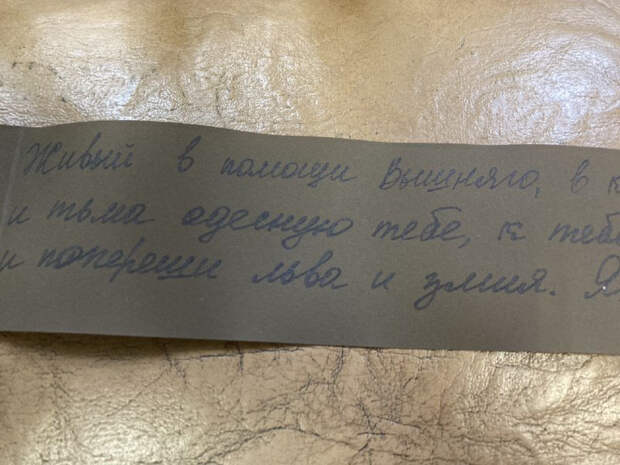 Живый в помощи Вышняго, в к
и тьма одесную тебе, к теб
и попереши льва и змия. Я